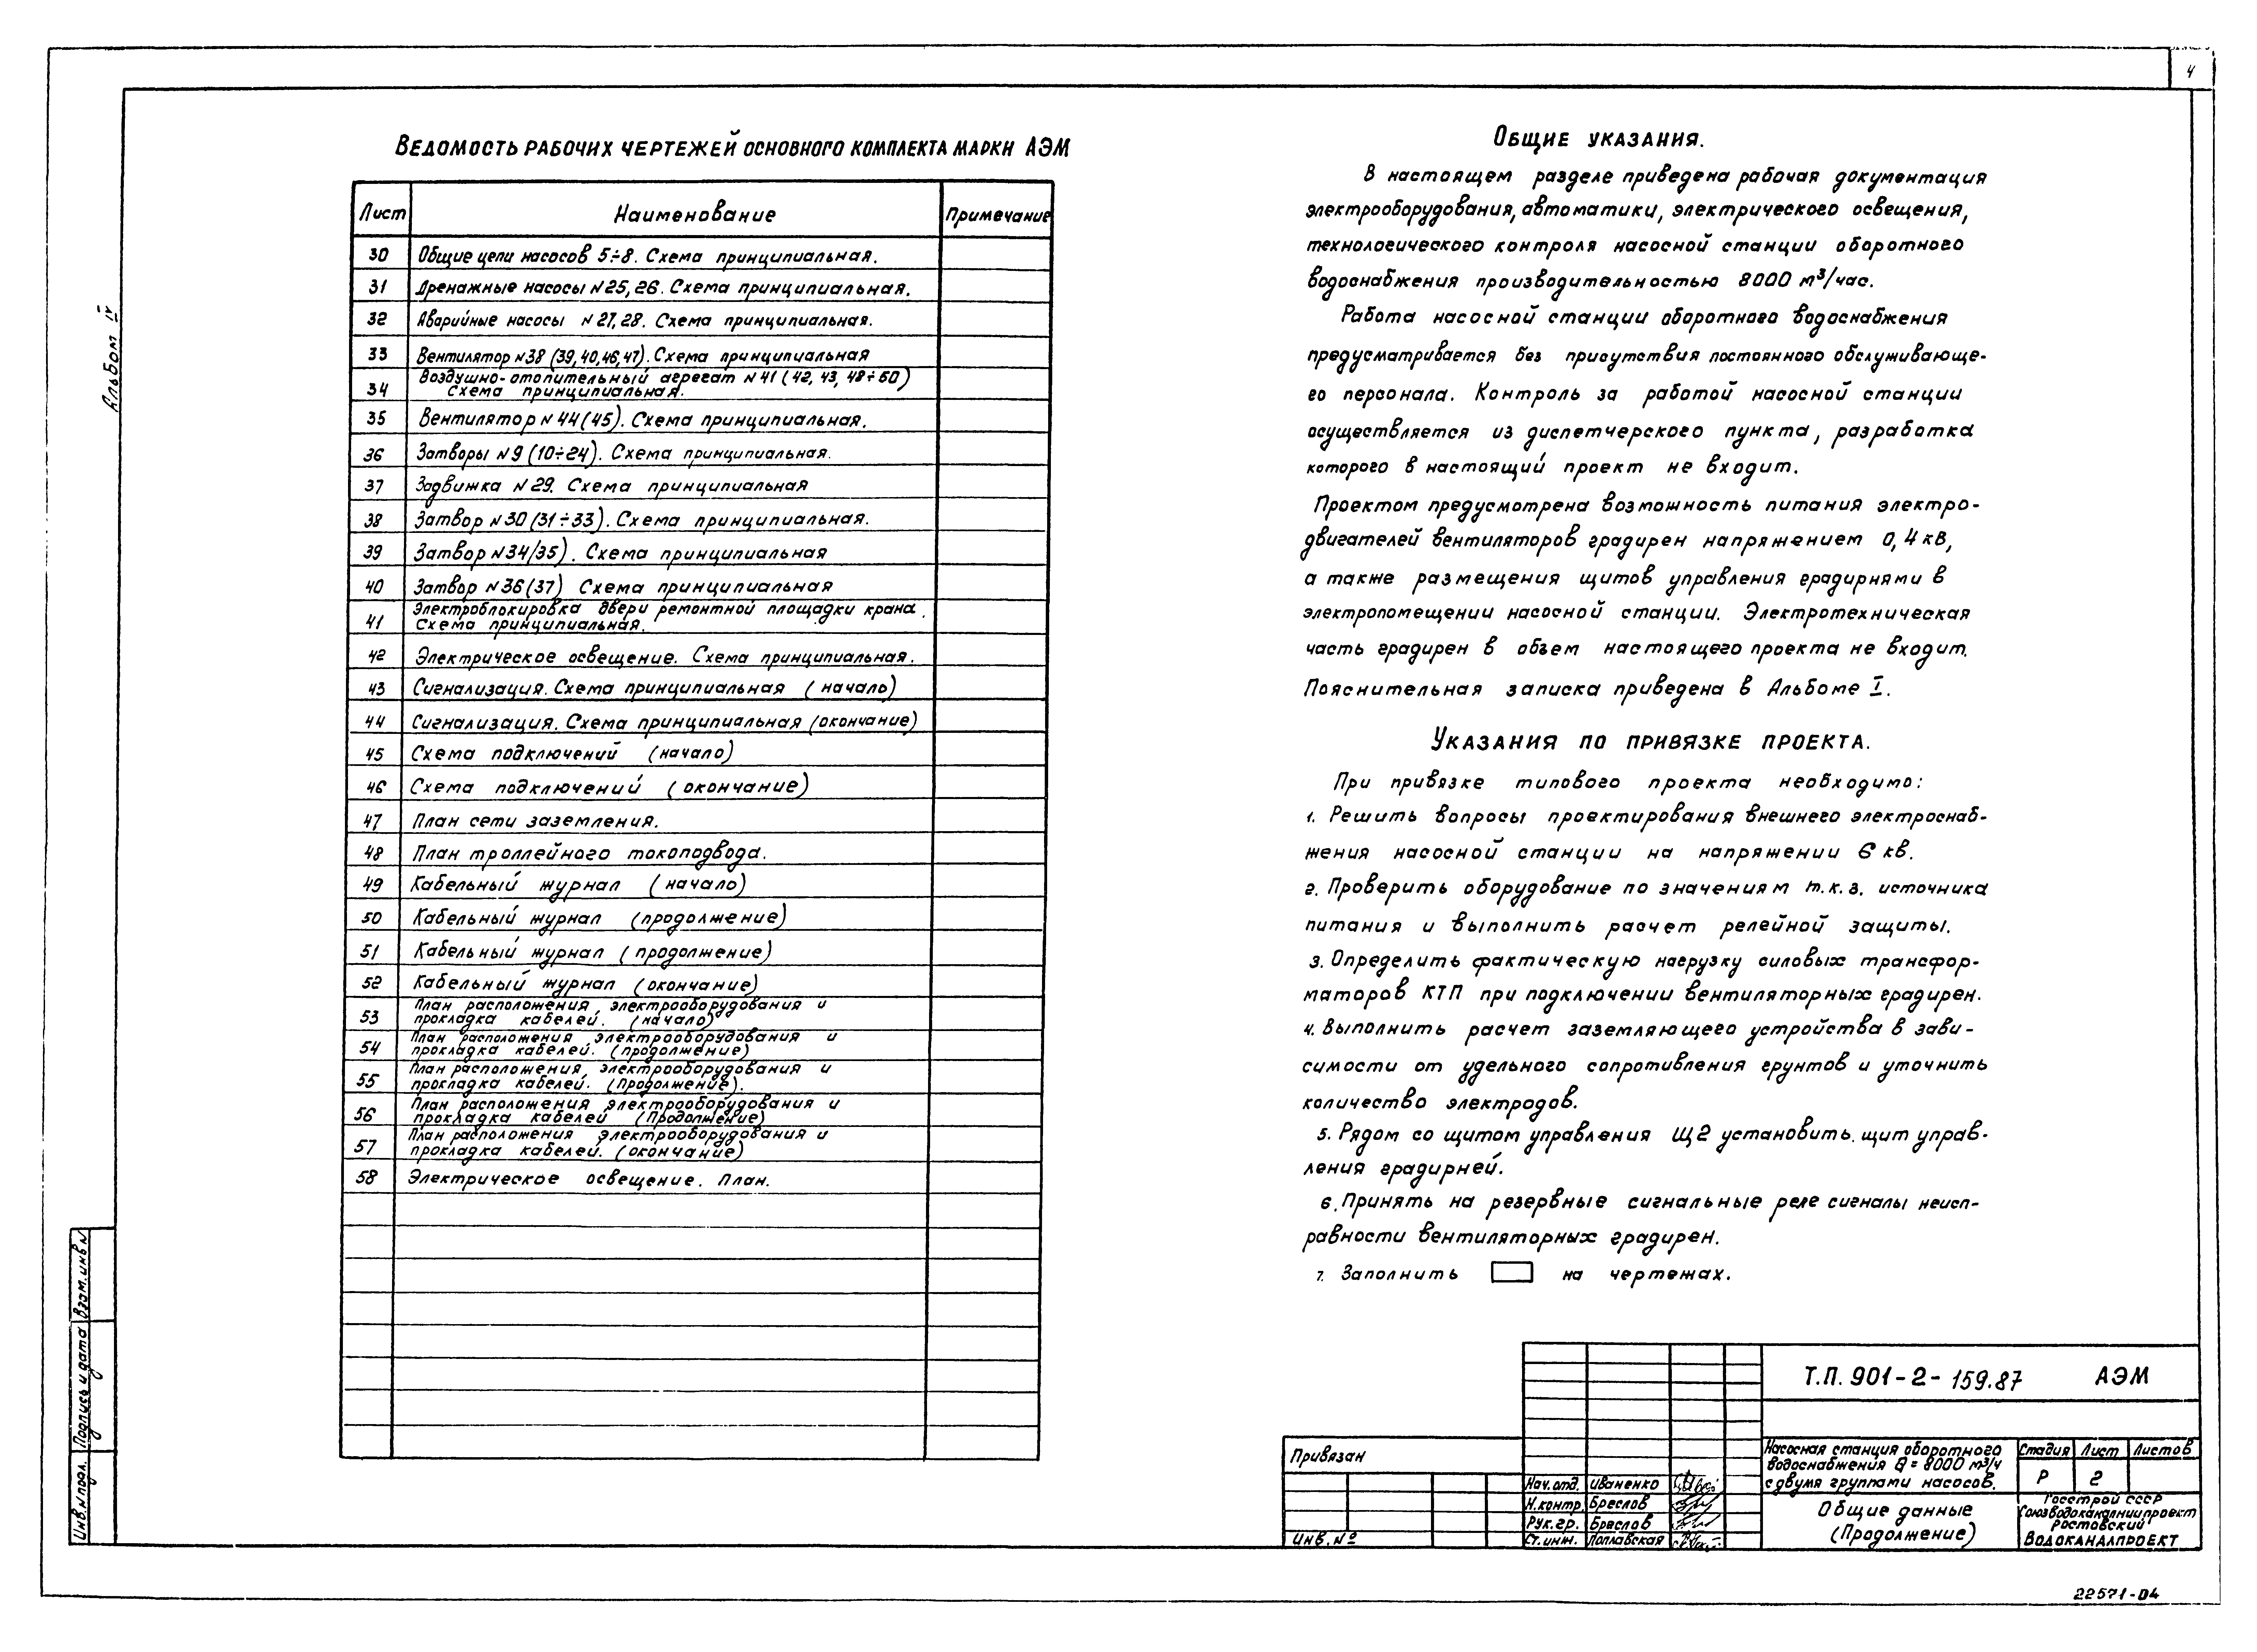 4
Альбом IV
Ведомость рабочих чертежей основного комплекта марки АЭМ
Лист Наименование Примечание
30 Общие цепи насосов 5÷8. Схема принципиальная.
31 Дренажные насосы N25, 26. Схема принципиальная.
32 Аварийные насосы N 27, 28. Схема принципиальная.
33 Вентилятор N38 (39, 40, 46, 47). Схема принципиальная
34 Воздушно-отопительный агрегат N 41 (42, 43, 48÷50)
Схема принципиальная.
35 Вентилятор N 44 (45). Схема принципиальная.
36 Затворы N 9 (10÷24). Схема принципиальная.
37 Задвижка N 29. Схема принципиальная
38 Затвор N 30 (31÷33). Схема принципиальная.
39 Затвор N34/35). Схема принципиальная
40 Затвор N 36 (37) Схема принципиальная
41 Электроблокировка двери ремонтной площадки крана.
Схема принципиальная.
42 Электрическое освещение. Схема принципиальная.
43 Сигнализация. Схема принципиальная (начало)
44 Сигнализация. Схема принципиальная (окончание)
45 Схема подключений (начало)
46 Схема подключений (окончание)
47 План сети заземления.
48 План троллейного токоподвода.
49 Кабельный журнал (начало)
50 Кабельный журнал (продолжение)
51 Кабельный журнал (продолжение)
52 Кабельный журнал (окончание)
53 План расположения электрооборудования и
прокладка кабелей. (начало)
54 План расположения электрооборудования и
прокладка кабелей. (продолжение)
55 План расположения электрооборудования и
прокладка кабелей. (Продолжение).
56 План расположения электрооборудования и
прокладка кабелей (Продолжение)
57 План расположения электрооборудования и
прокладка кабелей. (окончание)
58 Электрическое освещение. План.
Общие указания.
В настоящем разделе приведена рабочая документация
электрооборудования, автоматики, электрического освещения,
технологического контроля насосной станции оборотного
водоснабжения производительностью 8000 м³/час.
Работа насосной станции оборотного водоснабжения
предусматривается без присутствия постоянного обслуживающе-
го персонала. Контроль за работой насосной станции
осуществляется из диспетчерского пункта, разработка
которого в настоящий проект не входит.
Проектом предусмотрена возможность питания электро-
двигателей вентиляторов градирен напряжением 0,4 кв,
а также размещения щитов управления градирнями в
электропомещении насосной станции. Электротехническая
часть градирен в объем настоящего проекта не входит.
Пояснительная записка приведена в Альбоме I.
Указания по привязке проекта.
При привязке типового проекта необходимо:
1. Решить вопросы проектирования внешнего электроснаб-
жения насосной станции на напряжении 6 кв.
2. Проверить оборудование по значениям т.к.з. источника
питания и выполнить расчет релейной защиты.
3. Определить фактическую нагрузку силовых трансфор-
маторов КТП при подключении вентиляторных градирен.
4. Выполнить расчет заземляющего устройства в зави-
симости от удельного сопротивления грунтов и уточнить
количество электродов.
5. Рядом со щитом управления Щ2 установить щит управ-
ления градирней.
6. Принять на резервные сигнальные реле сигналы неисп-
равности вентиляторных градирен.
7. Заполнить на чертежах.
Инв.N подл. Подпись и дата Взам.инв N
Привязан
Инв. №
Нач.отд. Иваненко
Н.контр. Бреслов
Рук.гр. Бреслов
Ст.инж. Поплавская
Т.П. 901-2-159.87 АЭМ
Насосная станция оборотного
водоснабжения Q = 8000 м³/ч
с двумя группами насосов.
Стадия Лист Листов
Р 2
Общие данные
(Продолжение)
Госстрой СССР
Союзводоканалниипроект
Ростовский
Водоканалпроект
22571-04